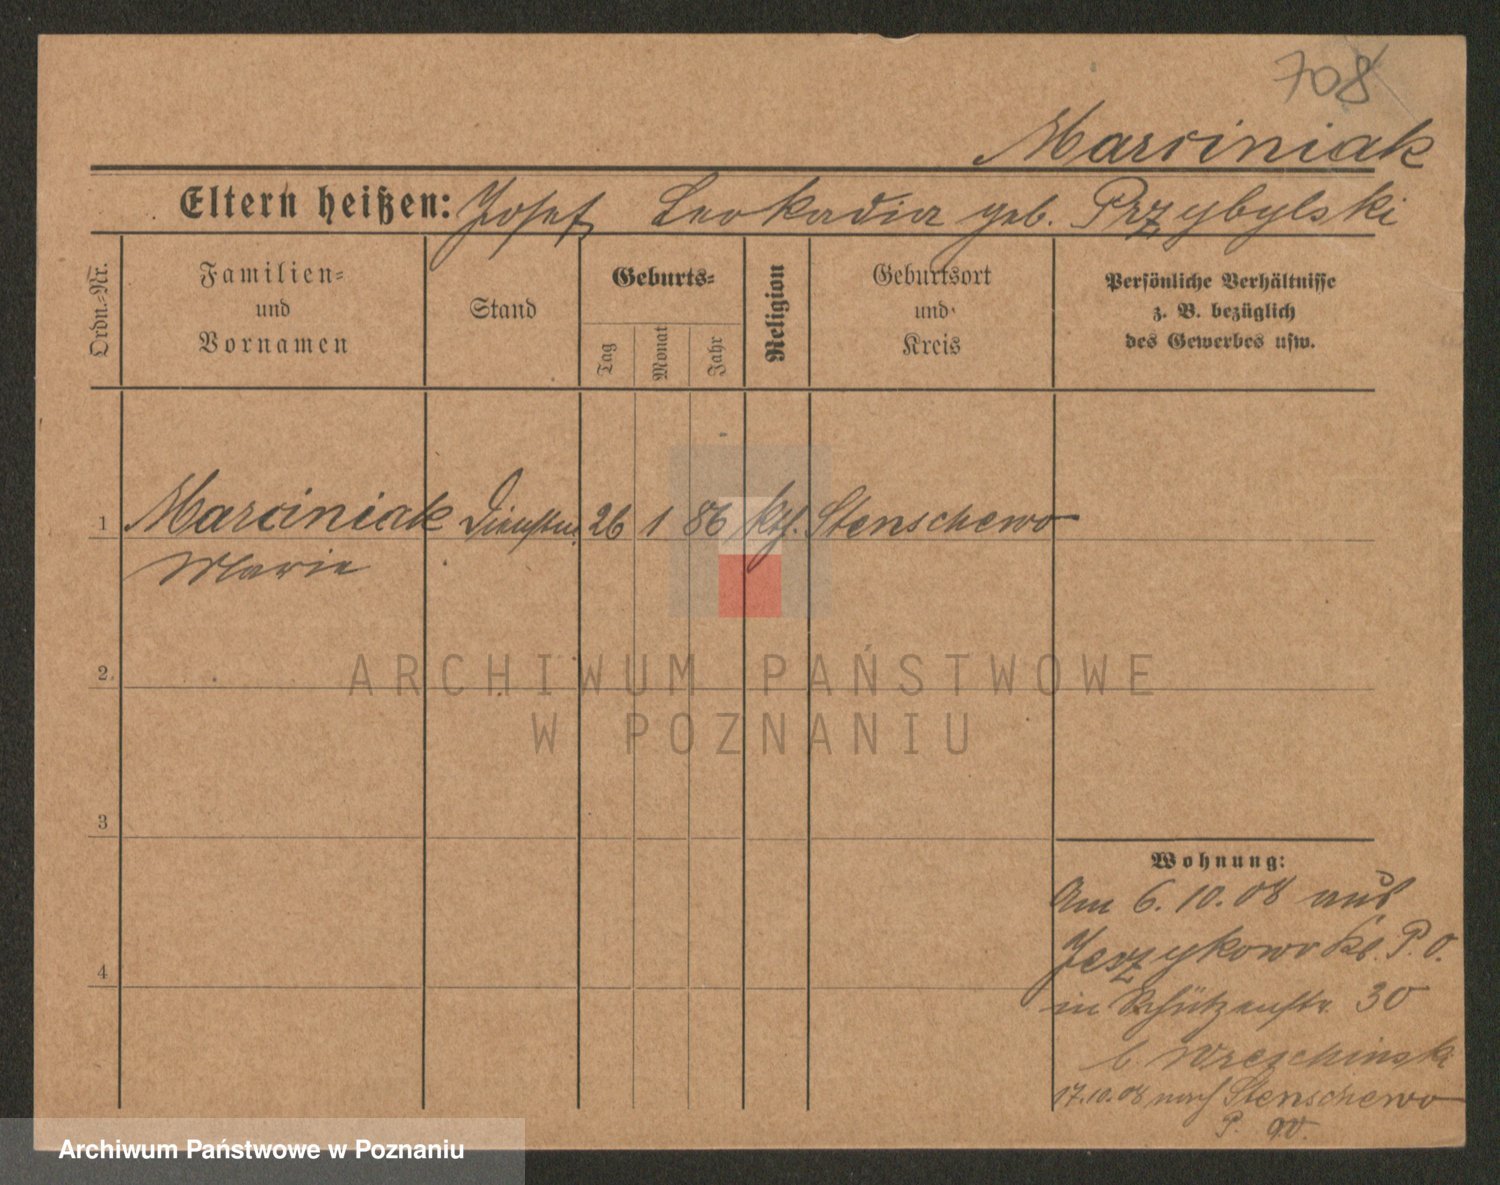 708
Marciniak
Eltern heißen: Josef Leokadia geb. Przybylski
Ordn.-Nr.
Familien-
und
Vornamen
Stand
Geburts-
Tag
Monat
Jahr
Religion
Geburtsort
und
Kreis
Persönliche Verhältnisse
z. B. bezüglich
des Gewerbes usw.
1 Marciniak 26 1 86 kth. Stenschewo
Marie
2
3
4
Wohnung:
Am 6.10.08 aus
Jerzykowo Kr. P. O.
in Schützenstr. 30
b. Wreschinski
17.10.08 nach Stenschewo
P. W.
ARCHIWUM PAŃSTWOWE
W POZNANIU
Archiwum Państwowe w Poznaniu